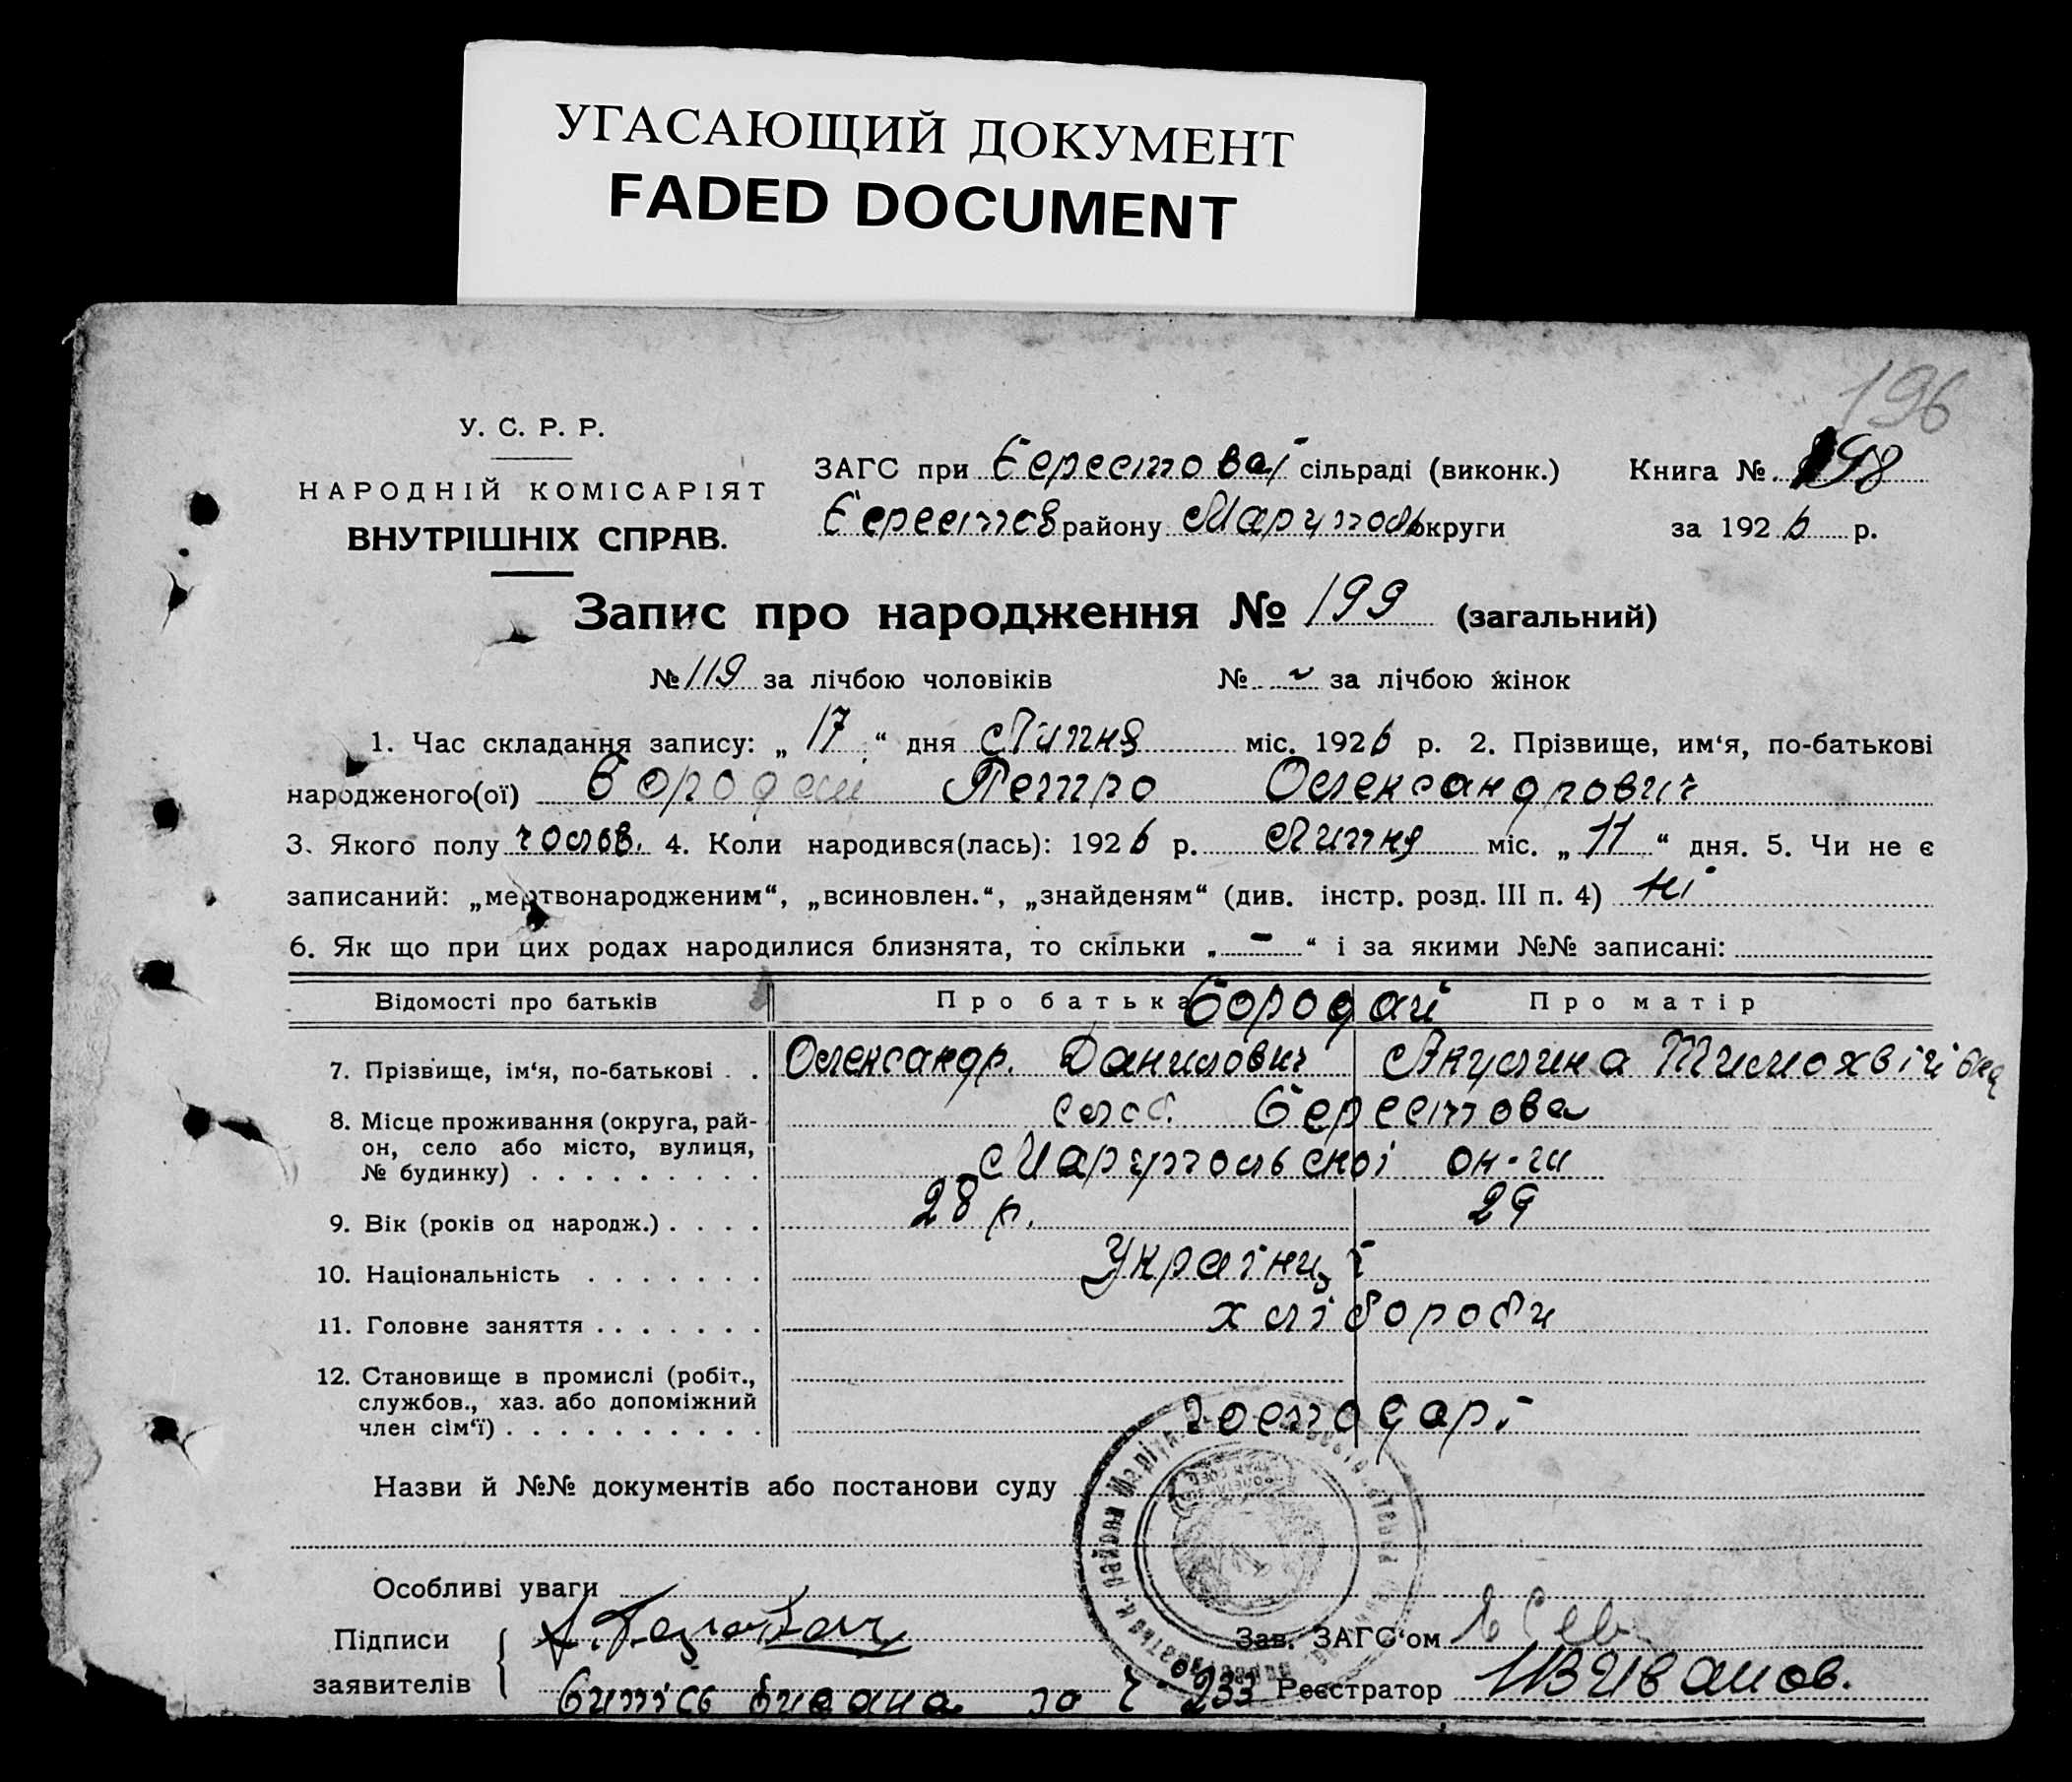 УГАСАЮЩИЙ ДОКУМЕНТ
FADED DOCUMENT
196
У. С. Р. Р.
НАРОДНІЙ КОМІСАРІЯТ
ВНУТРІШНІХ СПРАВ.
ЗАГС при Берестовай сільраді (виконк.) Книга № 198
Берестов району Маруполь округи за 1926 р.
Запис про народження № 199 (загальний)
№ 119 за лічбою чоловіків № ~ за лічбою жінок
1. Час складання запису: „ 17 “ дня Липня міс. 1926 р. 2. Прізвище, им‘я, по-батькові
народженого(ої) Бородай Петро Олександрович
3. Якого полу чолов. 4. Коли народився(лась): 1926 р. Липня міс. „ 11 “ дня. 5. Чи не є
записаний: „мертвонародженим“, „всиновлен.“, „знайденям“ (див. інстр. розд. III п. 4) ні
6. Як що при цих родах народилися близнята, то скільки „ - “ і за якими №№ записані:
Відомості про батьків Про батька Бородай Про матір
7. Прізвище, ім‘я, по-батькові . . Олександр. Данилович Якулина Тимохвіївна
8. Місце проживання (округа, рай-
он, село або місто, вулиця,
№ будинку) . . . . . . . . . .
слоб. Берестова
Марупольскої ок-ги
9. Вік (років од народж.) . . . . 28 р. 29
10. Національність . . . . . . . Українці
11. Головне заняття . . . . . . . хлібороби
12. Становище в промислі (робіт.,
службов., хаз. або допоміжний
член сім‘ї) . . . . . . . . . . господарі
Назви й №№ документів або постанови суду
Особливі уваги
Підписи
заявителів
Зав. ЗАГС‘ом
Випісь видана за № 233 Реєстратор Иванов.